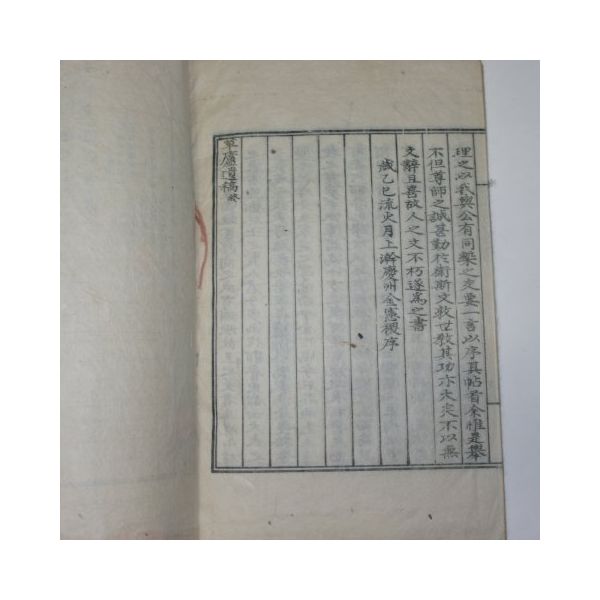 理之以我與公有同槧之交要一言以序其帖首余惟是擧
不但尊師之誠甚勤於衛斯文救世敎其功亦大矣不以無
文辭且喜故人之文不朽遂爲之書
歲乙巳流火月上澣慶州金憲稷序
草廬遺稿終